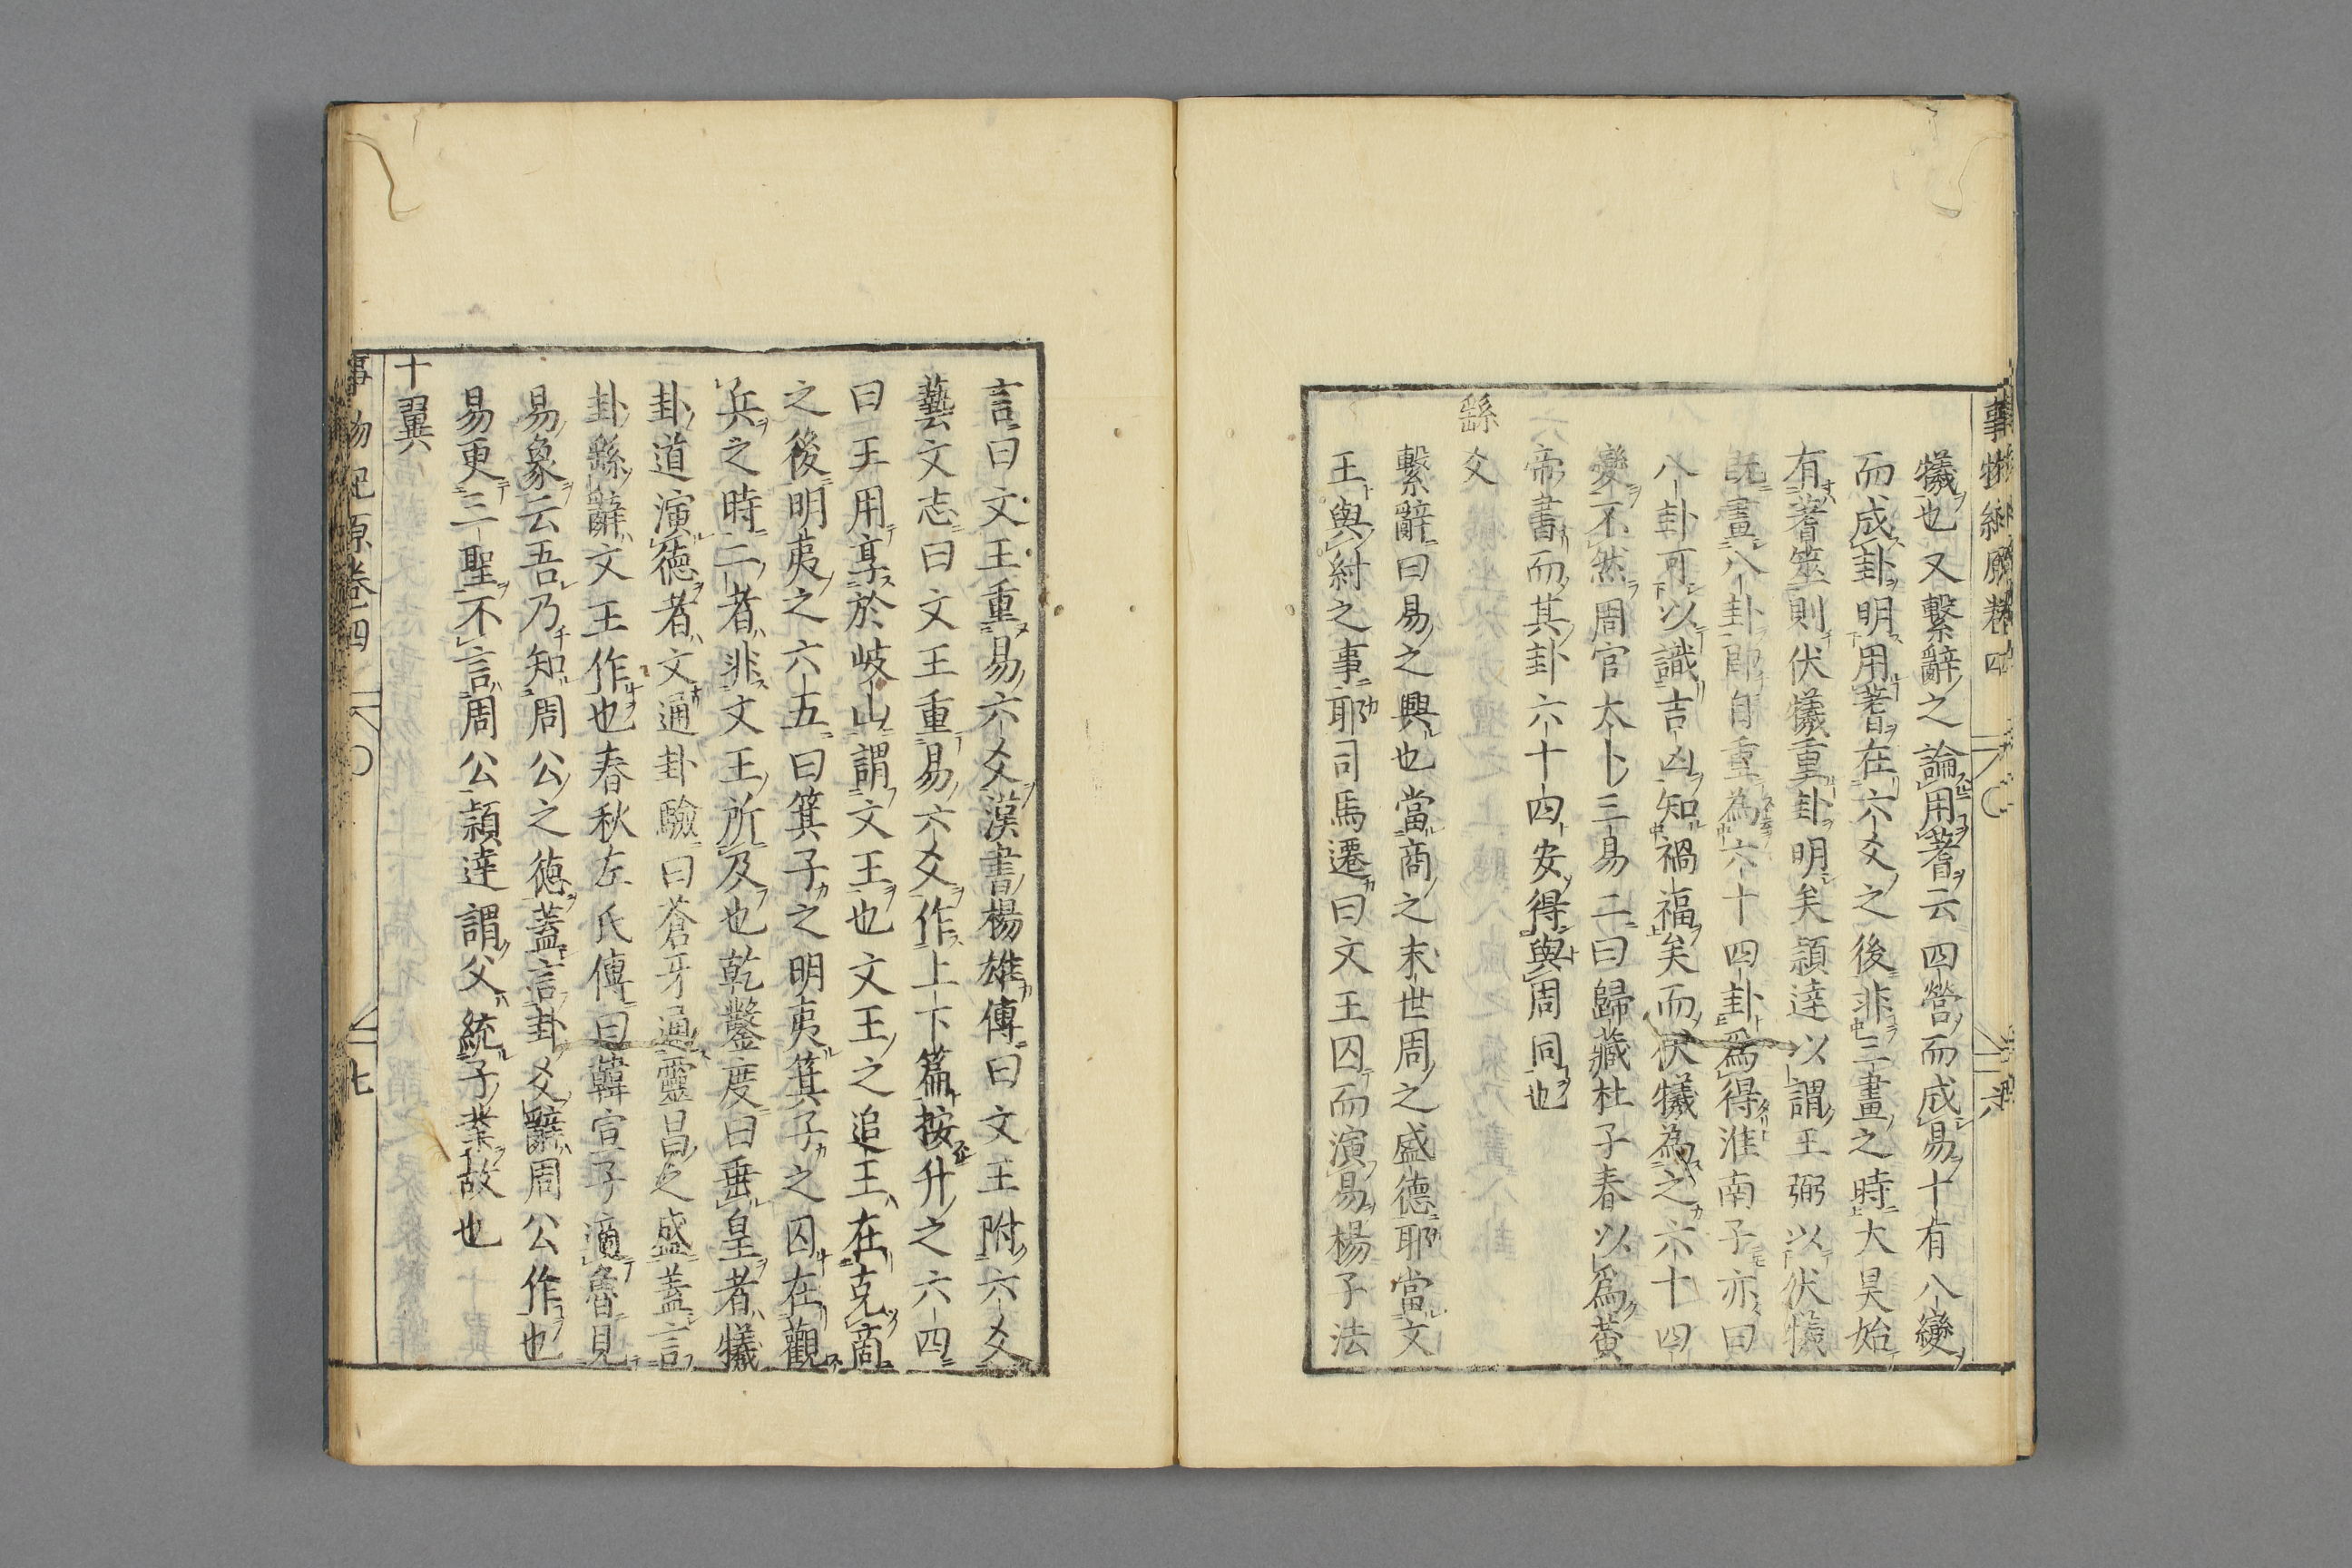 事物紀原卷四
犧也又繫辭之論用蓍云四營而成易十有八變
而成卦明用蓍在六爻之後非三畫之時大昊始
有蓍筮則伏犧重卦明矣穎達以謂王弼以伏犧
既畫八卦即自重為六十四卦爲得淮南子亦曰
八卦可以識吉凶知禍福矣而伏犧為之六十四
變不然周官太卜三易二曰歸藏杜子春以爲黄
帝書而其卦六十四安得與周同也
繇爻
繫辭曰易之興也當商之末世周之盛德耶當文
王與紂之事耶司馬遷曰文王囚而演易楊子法
言曰文王重易六爻漢書楊雄傳曰文王附六爻
藝文志曰文王重易六爻作上下篇按升之六四
曰王用享於岐山謂文王也文王之追王在克商
之後明夷之六五曰箕子之明夷箕子之囚在觀
兵之時二者非文王所及也乾鑿度曰垂皇者犧
卦道演德者文通卦驗曰蒼牙通靈昌之盛蓋言
卦繇辭文王作也春秋左氏傳曰韓宣子適魯見
易象云吾乃知周公之德蓋言卦爻辭周公作也
易更三聖不言周公穎達謂父統子業故也
十翼
事物紀原卷四 七